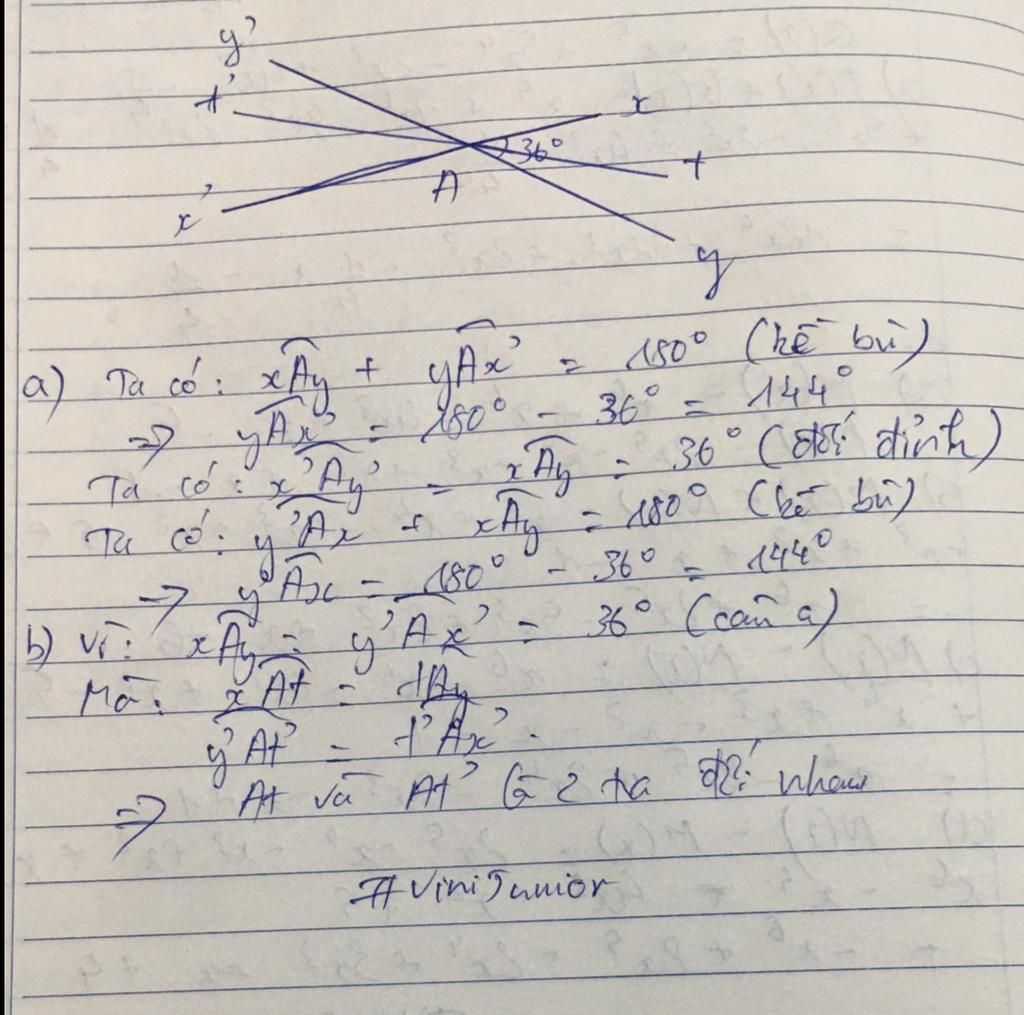 y'
t'
x
36°
t
A
x'
y
a) Ta có: xAy + yAx' = 180° (kề bù)
=> yAx' = 180° - 36° = 144°
Ta có: x'Ay' = xAy = 36° (đối đỉnh)
Ta có: y'Ax + xAy = 180° (kề bù)
=> y'Ax = 180° - 36° = 144°
b) Vì: xAy = y'Ax' = 36° (câu a)
Mà: xAt = tAy
y'At' = t'Ax'.
=> At và At' là 2 tia đối nhau
#ViniJunior